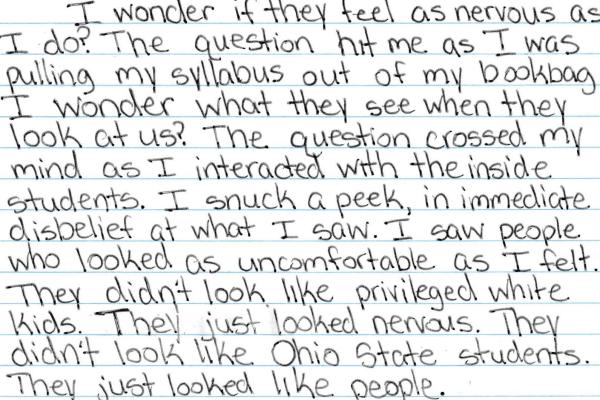 I wonder if they feel as nervous as
I do? The question hit me as I was
pulling my syllabus out of my bookbag
I wonder what they see when they
look at us? The question crossed my
mind as I interacted with the inside
students. I snuck a peek, in immediate
disbelief at what I saw. I saw people
who looked as uncomfortable as I felt.
They didn't look like privileged white
kids. They just looked nervous. They
didn't look like Ohio State students.
They just looked like people.